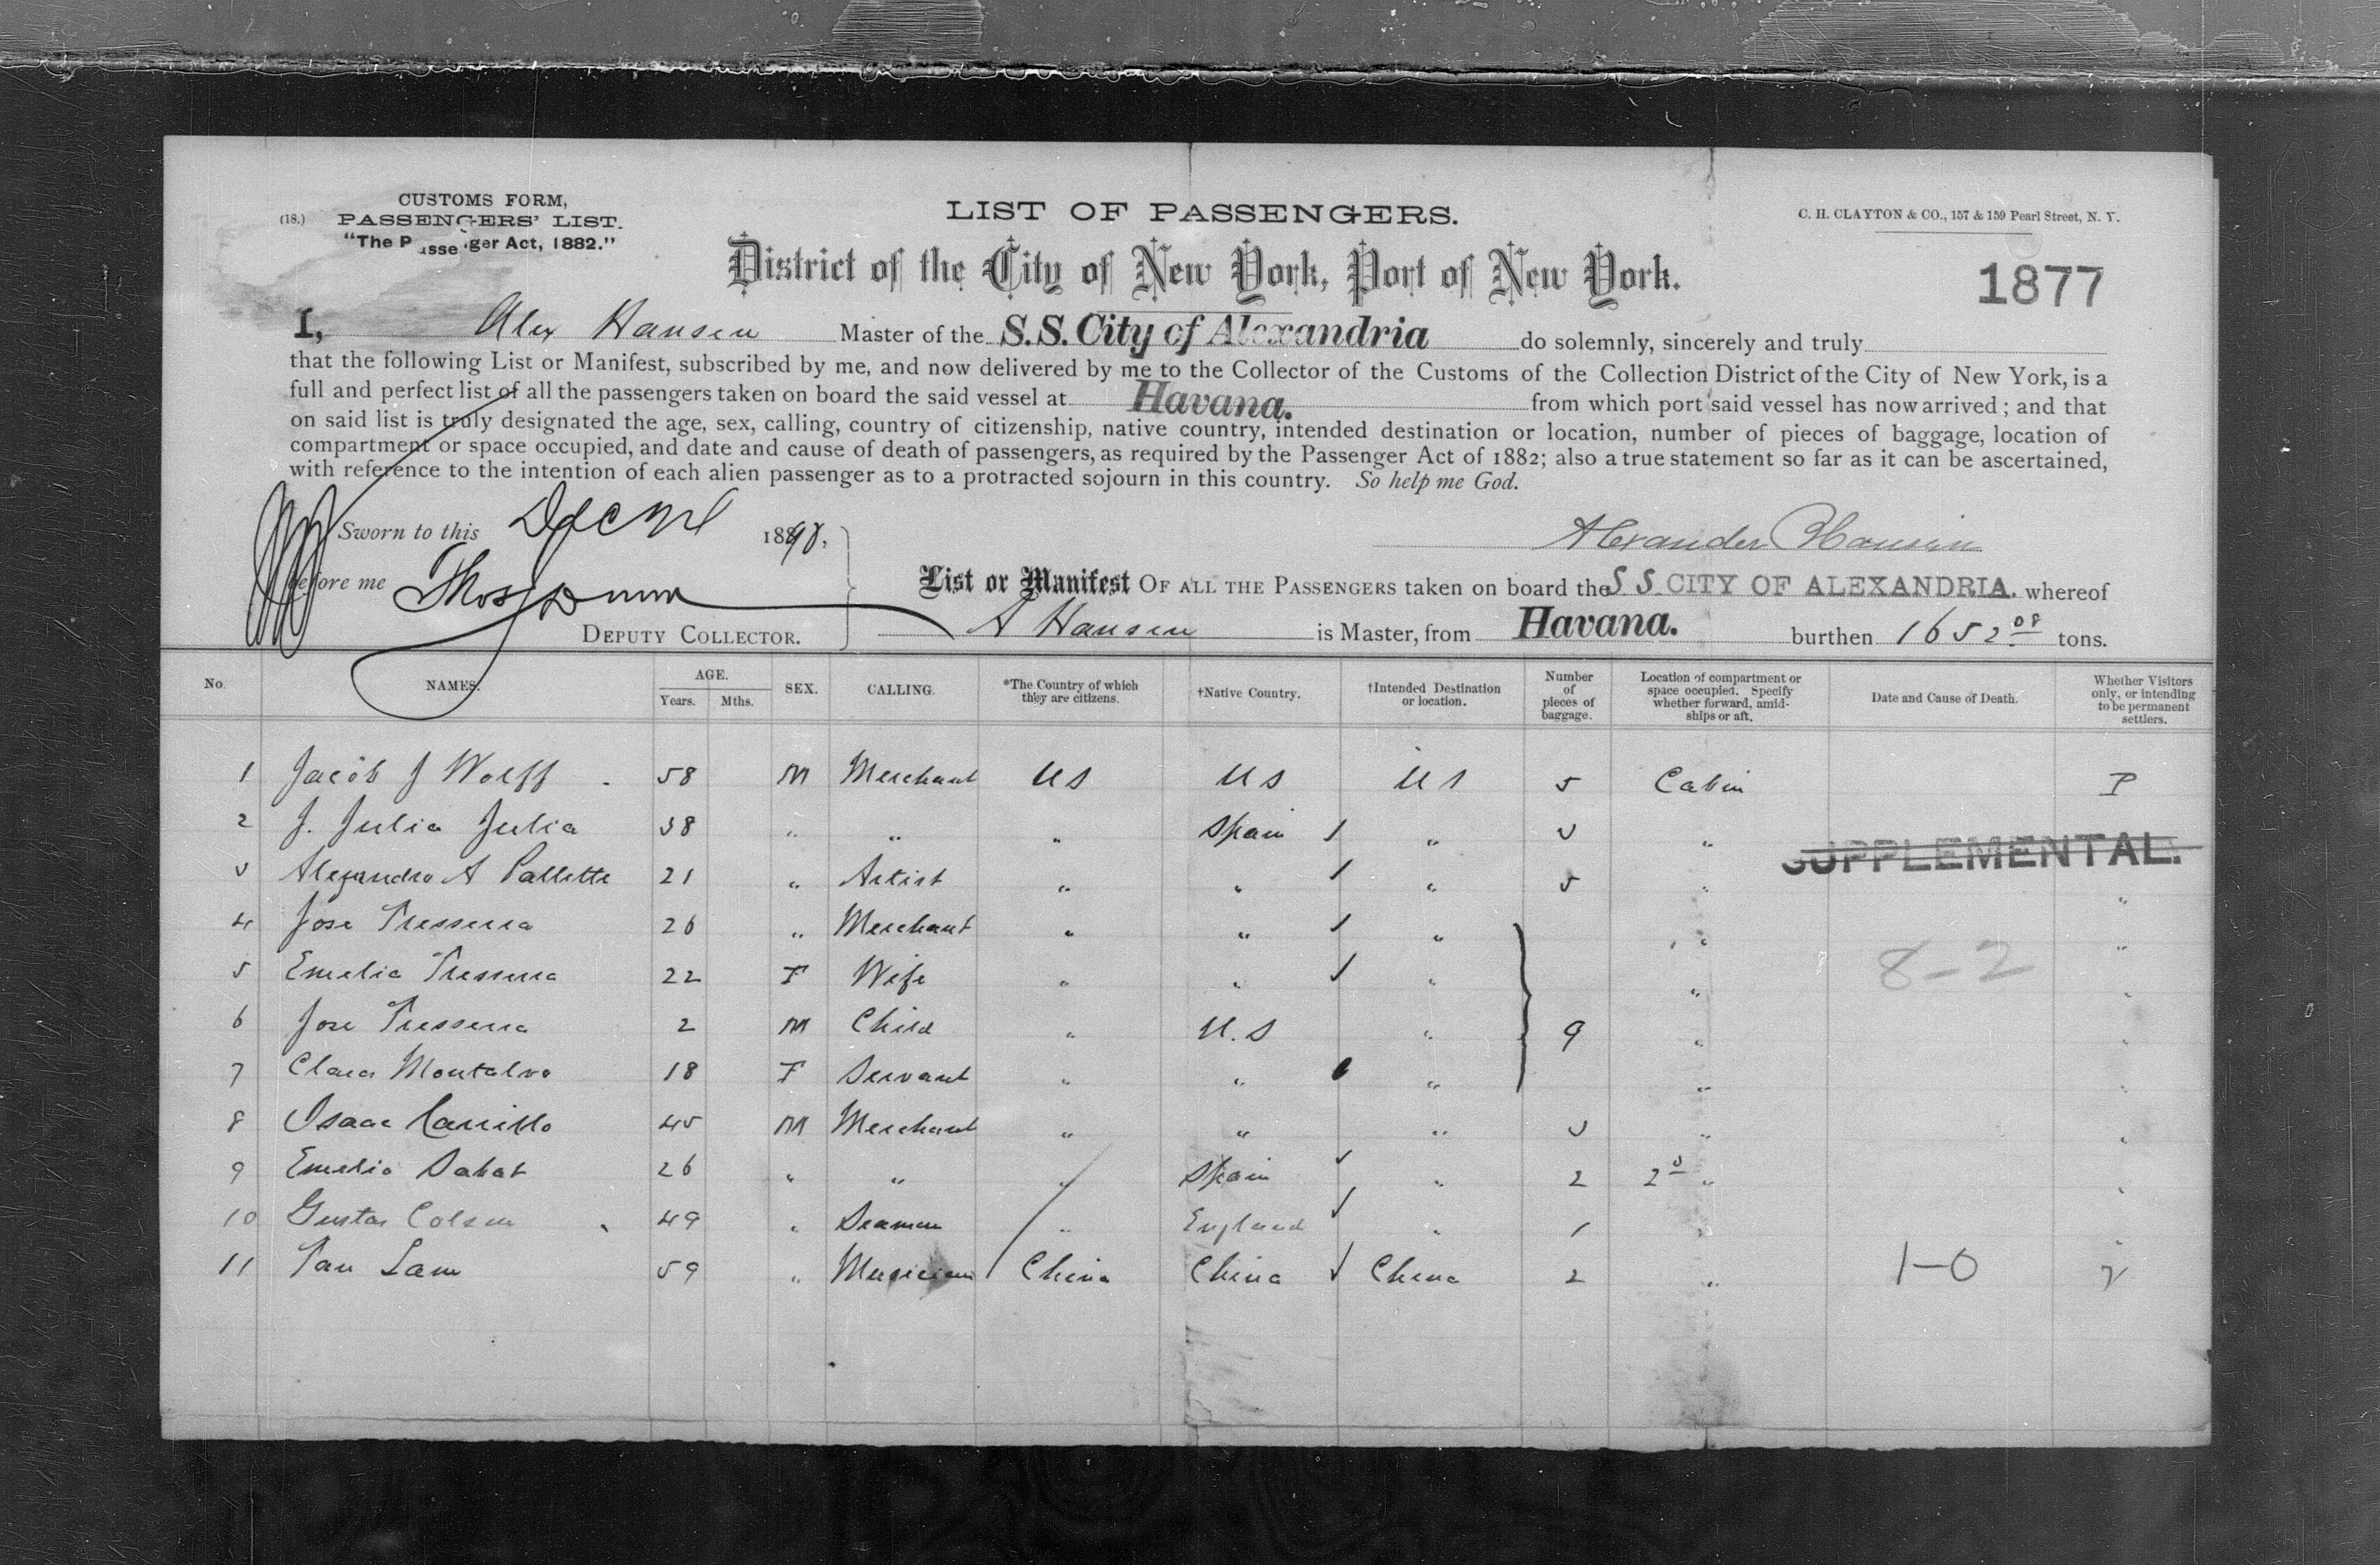 CUSTOMS FORM,
(18.) PASSENGERS' LIST.
"The Passenger Act, 1882."
LIST OF PASSENGERS.
C. H. CLAYTON & CO., 157 & 159 Pearl Street, N. Y.
District of the City of New York, Port of New York.
1877
I, Alex Hansen Master of the S.S. City of Alexandria do solemnly, sincerely and truly
that the following List or Manifest, subscribed by me, and now delivered by me to the Collector of the Customs of the Collection District of the City of New York, is a
full and perfect list of all the passengers taken on board the said vessel at Havana. from which port said vessel has now arrived; and that
on said list is truly designated the age, sex, calling, country of citizenship, native country, intended destination or location, number of pieces of baggage, location of
compartment or space occupied, and date and cause of death of passengers, as required by the Passenger Act of 1882; also a true statement so far as it can be ascertained,
with reference to the intention of each alien passenger as to a protracted sojourn in this country. So help me God.
Sworn to this Dec 1890,
Alexander Hansen
before me Thos
DEPUTY COLLECTOR.
List or Manifest OF ALL THE PASSENGERS taken on board the S S. CITY OF ALEXANDRIA. whereof
A Hansen is Master, from Havana. burthen 1652 08 tons.
No. NAMES. AGE. Years. Mths. SEX. CALLING. *The Country of which they are citizens. †Native Country. †Intended Destination or location. Number of pieces of baggage. Location of compartment or space occupied. Specify whether forward, amidships or aft. Date and Cause of Death. Whether Visitors only, or intending to be permanent settlers.
1 Jacob J Wolff 58 M Merchant US US US 5 Cabin P
2 J. Julia Julia 38 " " " Spain " 3 "
SUPPLEMENTAL.
3 Alejandro A Pallette 21 " Artist " " " 5 " "
4 Jose Tresserra 26 " Merchant " " " " "
5 Emelia Tresserra 22 F Wife " " " " "
8-2
6 Jose Tresserra 2 M Child " U.S " 9 " "
7 Clara Montalvo 18 F Servant " " " " "
8 Isaac Carrillo 45 M Merchant " " " 3 " "
9 Emelio Sabat 26 " " " Spain " 2 2d " "
10 Gustav Colsen 49 " Seaman " England " 1 " "
11 Tan Lam 59 " Musician China China China 2 " 1-0 V